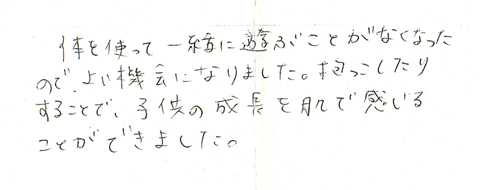 体を使って一緒に遊ぶことがなくなった
ので、よい機会になりました。抱っこしたり
することで、子供の成長を肌で感じる
ことができました。